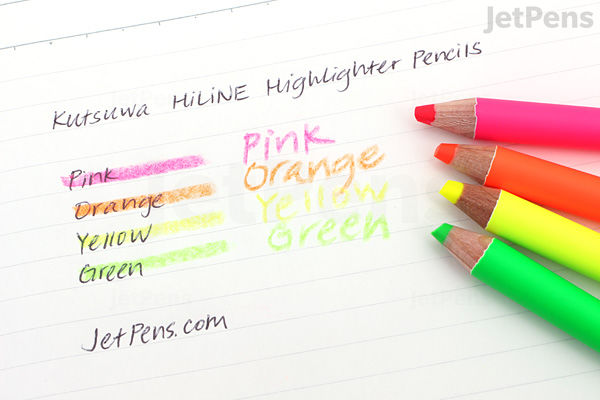 JetPens
Kutsuwa HiLiNE Highlighter Pencils
Pink
Orange
Yellow
Green
Pink
Orange
Yellow
Green
JetPens.com